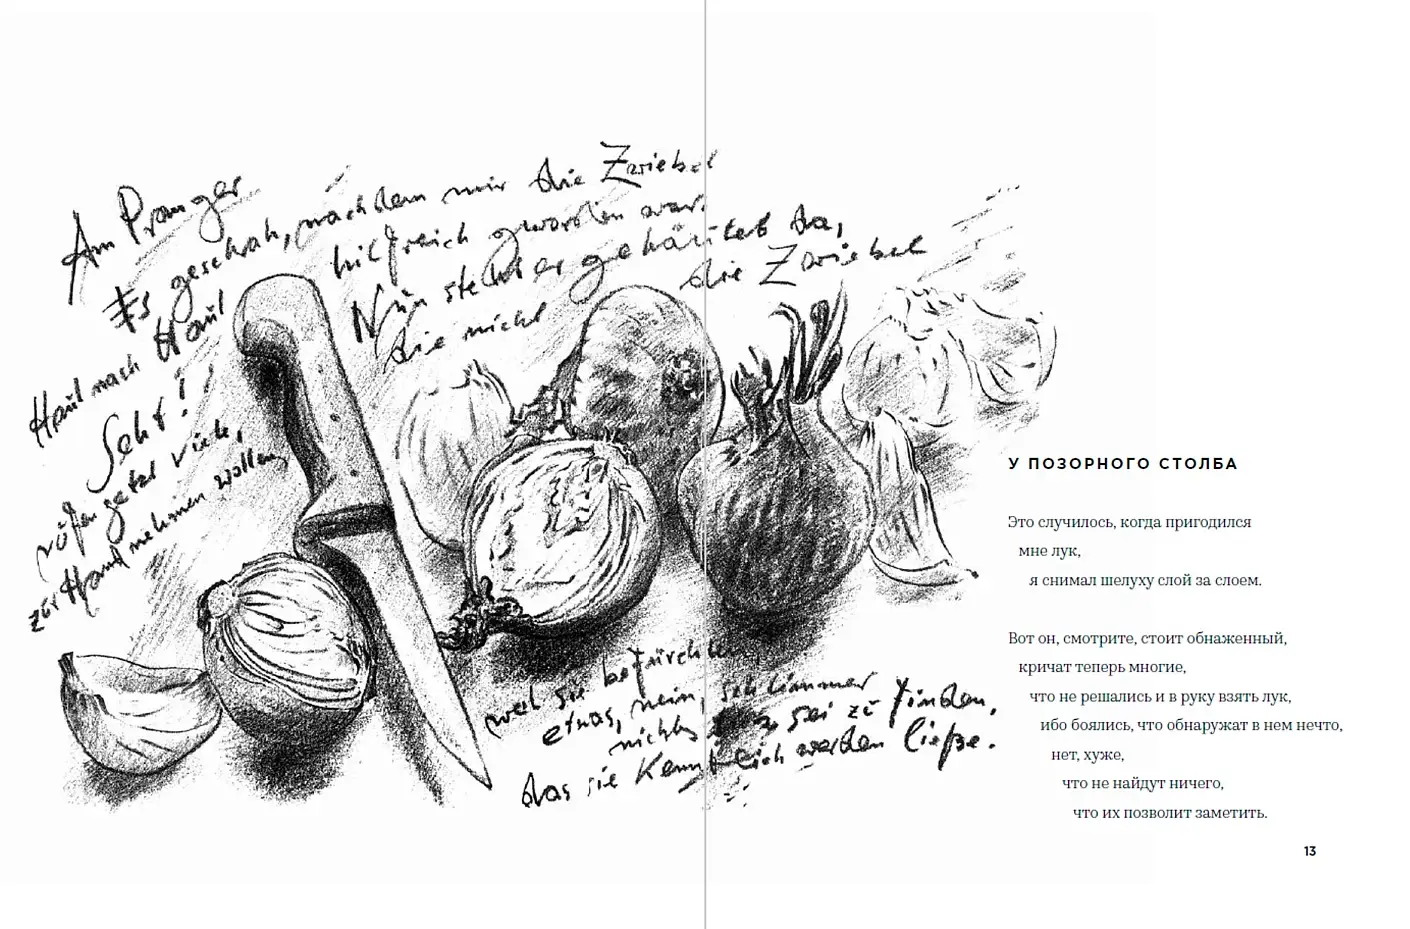 Am Pranger
Es geschah, nachdem mir die Zwiebel
Haut nach Haut
hilfreich geworden war.
Seht!
Nun steht er gehäutet da,
rufen jetzt viele,
die nicht
die Zwiebel
zur Hand nehmen wollen,
weil sie befürchten,
etwas, nein, schlimmer
nichts sei zu finden,
das sie kenntlich werden ließe.
У ПОЗОРНОГО СТОЛБА
Это случилось, когда пригодился
мне лук,
я снимал шелуху слой за слоем.
Вот он, смотрите, стоит обнаженный,
кричат теперь многие,
что не решались и в руку взять лук,
ибо боялись, что обнаружат в нем нечто,
нет, хуже,
что не найдут ничего,
что их позволит заметить.
13